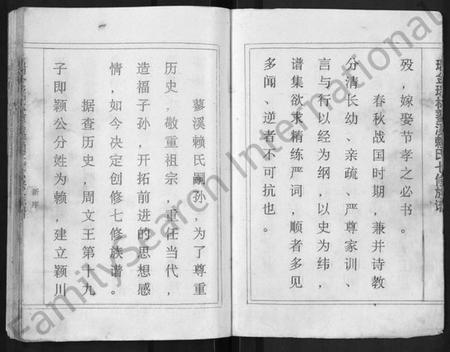 瑞金琅林蓼溪赖氏七修族谱
殁，嫁娶节孝之必书。
春秋战国时期，兼并诗教
分清长幼、亲疏、严尊家训、
言与行以经为纲，以史为纬，
谱集欲求精练严词，顺者多见
多闻、逆者不可抗也。
蓼溪赖氏嗣孙，为了尊重
历史，敬重祖宗，重任当代，
造福子孙，开拓前进的思想感
情，如今决定创修七修族谱。
据查历史，周文王第十九
子即颖公分姓为赖，建立颖川
新序
FamilySearch International